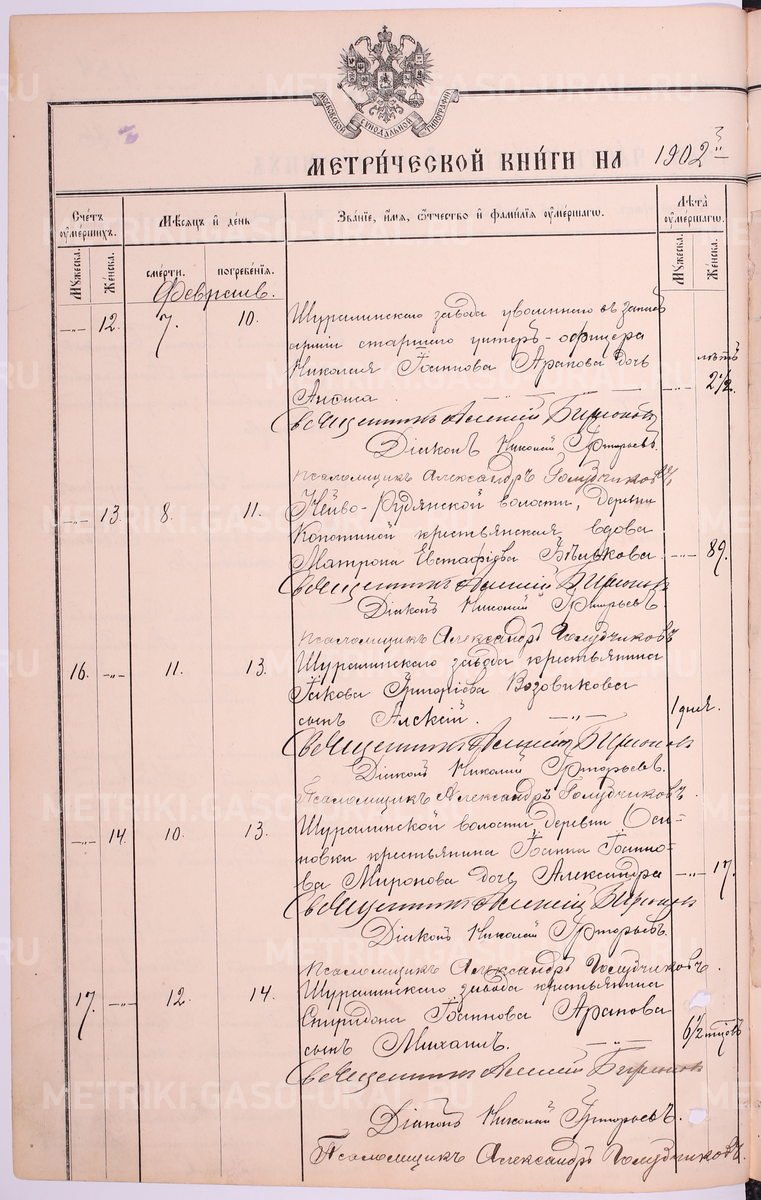 МОСКОВСКОЙ СѴНОДАЛЬНОЙ ТИПОГРАФІИ
МЕТРИ́ЧЕСКОЙ КНИ́ГИ НА 1902
Сче́тъ ᲂу҆ме́ршихъ.
Мꙋ́жеска.
Же́нска.
Мѣ́сѧцъ и҆ де́нь
сме́рти.
погребе́нїѧ.
Зва́нїе, и҆́мѧ, ѻ҆́тчество и҆ фами́лїѧ ᲂу҆ме́ршагѡ.
Лѣ́та ᲂу҆ме́ршагѡ.
Мꙋ́жеска.
Же́нска.
Февраль.
-„- 12. 7. 10. Шуралинскаго завода уволеннаго въ запасъ
арміи старшаго унтеръ-офицера
Николая Іоаннова Арапова дочь
Анѳиса. -„- лѣтъ 2 1/2.
Священникъ Алексій Бирюковъ
Діаконъ Николай Григорьевъ.
Псаломщикъ Александръ Голубчиковъ
-„- 13. 8. 11. Нейво-Рудянской волости, деревни
Копотиной крестьянская вдова
Матрона Евстафіева Бѣлькова -„- 89.
Священникъ Алексій Бирюковъ
Діаконъ Николай Григорьевъ.
Псаломщикъ Александръ Голубчиковъ
16. -„- 11. 13. Шуралинскаго завода крестьянина
Іакова Григоріева Возовикова
сынъ Алексій. -„- 1 дня.
Священникъ Алексій Бирюковъ
Діаконъ Николай Григорьевъ.
Псаломщикъ Александръ Голубчиковъ.
-„- 14. 10. 13. Шуралинской волости деревни Оси-
новки крестьянина Іоанна Іоанно-
ва Миронова дочь Александра -„- 17.
Священникъ Алексій Бирюковъ
Діаконъ Николай Григорьевъ.
Псаломщикъ Александръ Голубчиковъ.
17. -„- 12. 14. Шуралинскаго завода крестьянина
Спиридона Іоаннова Арапова
сынъ Михаилъ. -„- 6 1/2
Священникъ Алексій Бирюковъ
Діаконъ Николай Григорьевъ.
Псаломщикъ Александръ Голубчиковъ.
METRIKI.GASO-URAL.RU